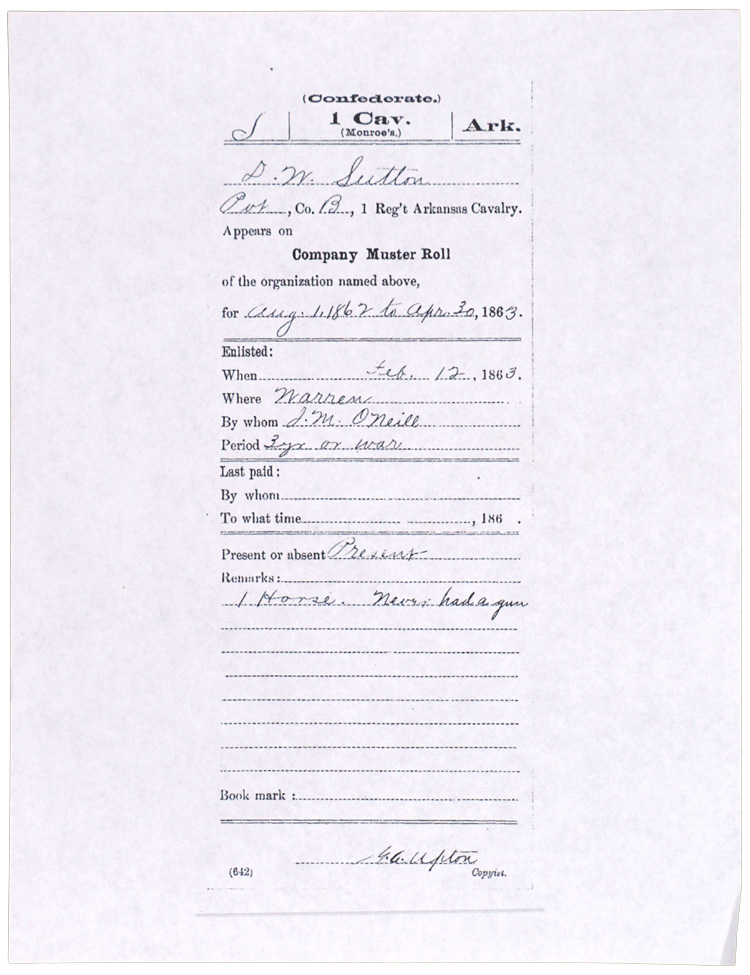 (Confederate.)
S | 1 Cav. | Ark.
(Monroe's.)
D. W. Sutton
Pvt, Co. B, 1 Reg't Arkansas Cavalry.
Appears on
Company Muster Roll
of the organization named above,
for Aug. 1, 1862 to Apr. 30, 1863.
Enlisted:
When Feb. 12, 1863.
Where Warren
By whom J. M. O'Neill
Period 3 yr or war
Last paid:
By whom
To what time , 186 .
Present or absent Present
Remarks:
1 Horse. Never had a gun
Book mark:
G.A. Upton
(642) Copyist.